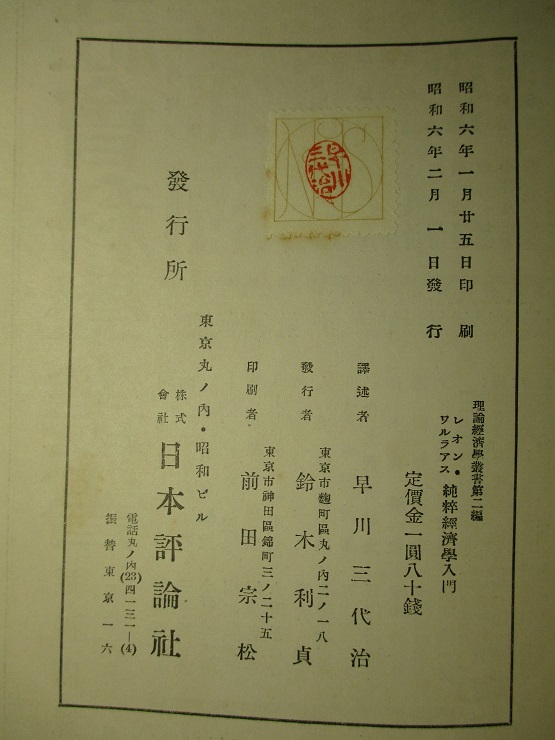 昭和六年一月廿五日印刷
昭和六年二月一日發行
理論經濟學叢書第二編
レオン・ワルラアス 純粹經濟學入門
定價金一圓八十錢
譯述者 早川三代治
東京市麴町區丸ノ內二ノ一八
發行者 鈴木利貞
東京市神田區錦町三ノ二十五
印刷者 前田宗松
發行所
東京丸ノ內・昭和ビル
株式會社 日本評論社
電話丸ノ內(23)四一三一—(4)
振替東京一六